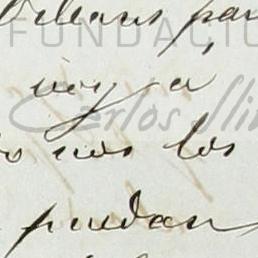 Orleans par
FUNDACIÓ
voy á
Carlos Slim
o nos los
puedan